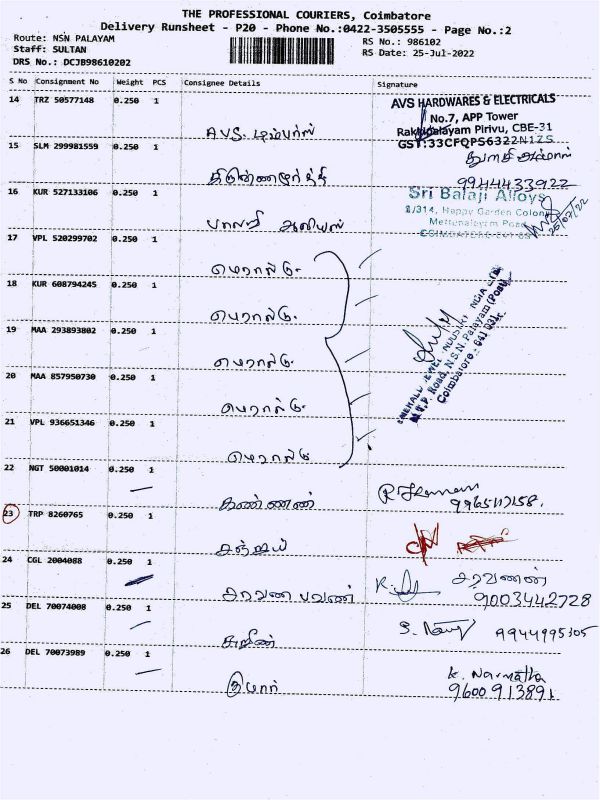 THE PROFESSIONAL COURIERS, Coimbatore
Delivery Runsheet - P20 - Phone No.:0422-3505555 - Page No.:2
Route: NSN PALAYAM
RS No.: 986102
Staff: SULTAN
RS Date: 25-Jul-2022
DRS No.: DCJB98610202
S No Consignment No Weight PCS Consignee Details Signature
14 TRZ 50577148 0.250 1
AVS HARDWARES & ELECTRICALS
No.7, APP Tower
AVS.
Rakkipalayam Pirivu, CBE-31
GST:33CFQPS6322N1ZS
15 SLM 299981559 0.250 1
9944433922
16 KUR 527133106 0.250 1
Sri Balaji Alloys
2/314, Happy Garden Colony
Mettupalayam Road
25/07/22
17 VPL 520299702 0.250 1
எமரால்டு.
18 KUR 608794245 0.250 1
எமரால்டு.
19 MAA 293893802 0.250 1
எமரால்டு.
EMERALD JEWEL INDUSTRY INDIA LTD
M.T.P. Road, N.S.N. Palayam (Post)
Coimbatore - 641 031.
20 MAA 857950730 0.250 1
எமரால்டு.
21 VPL 936651346 0.250 1
எமரால்டு
22 NGT 50001014 0.250 1
கண்ணன்
23 TRP 8260765 0.250 1
சஞ்சய்
24 CGL 2004088 0.250 1
சரவண பவன்
சரவணன்
9003442728
25 DEL 70074008 0.250 1
9944995305
26 DEL 70073989 0.250 1
K. Narmatha
9600913891